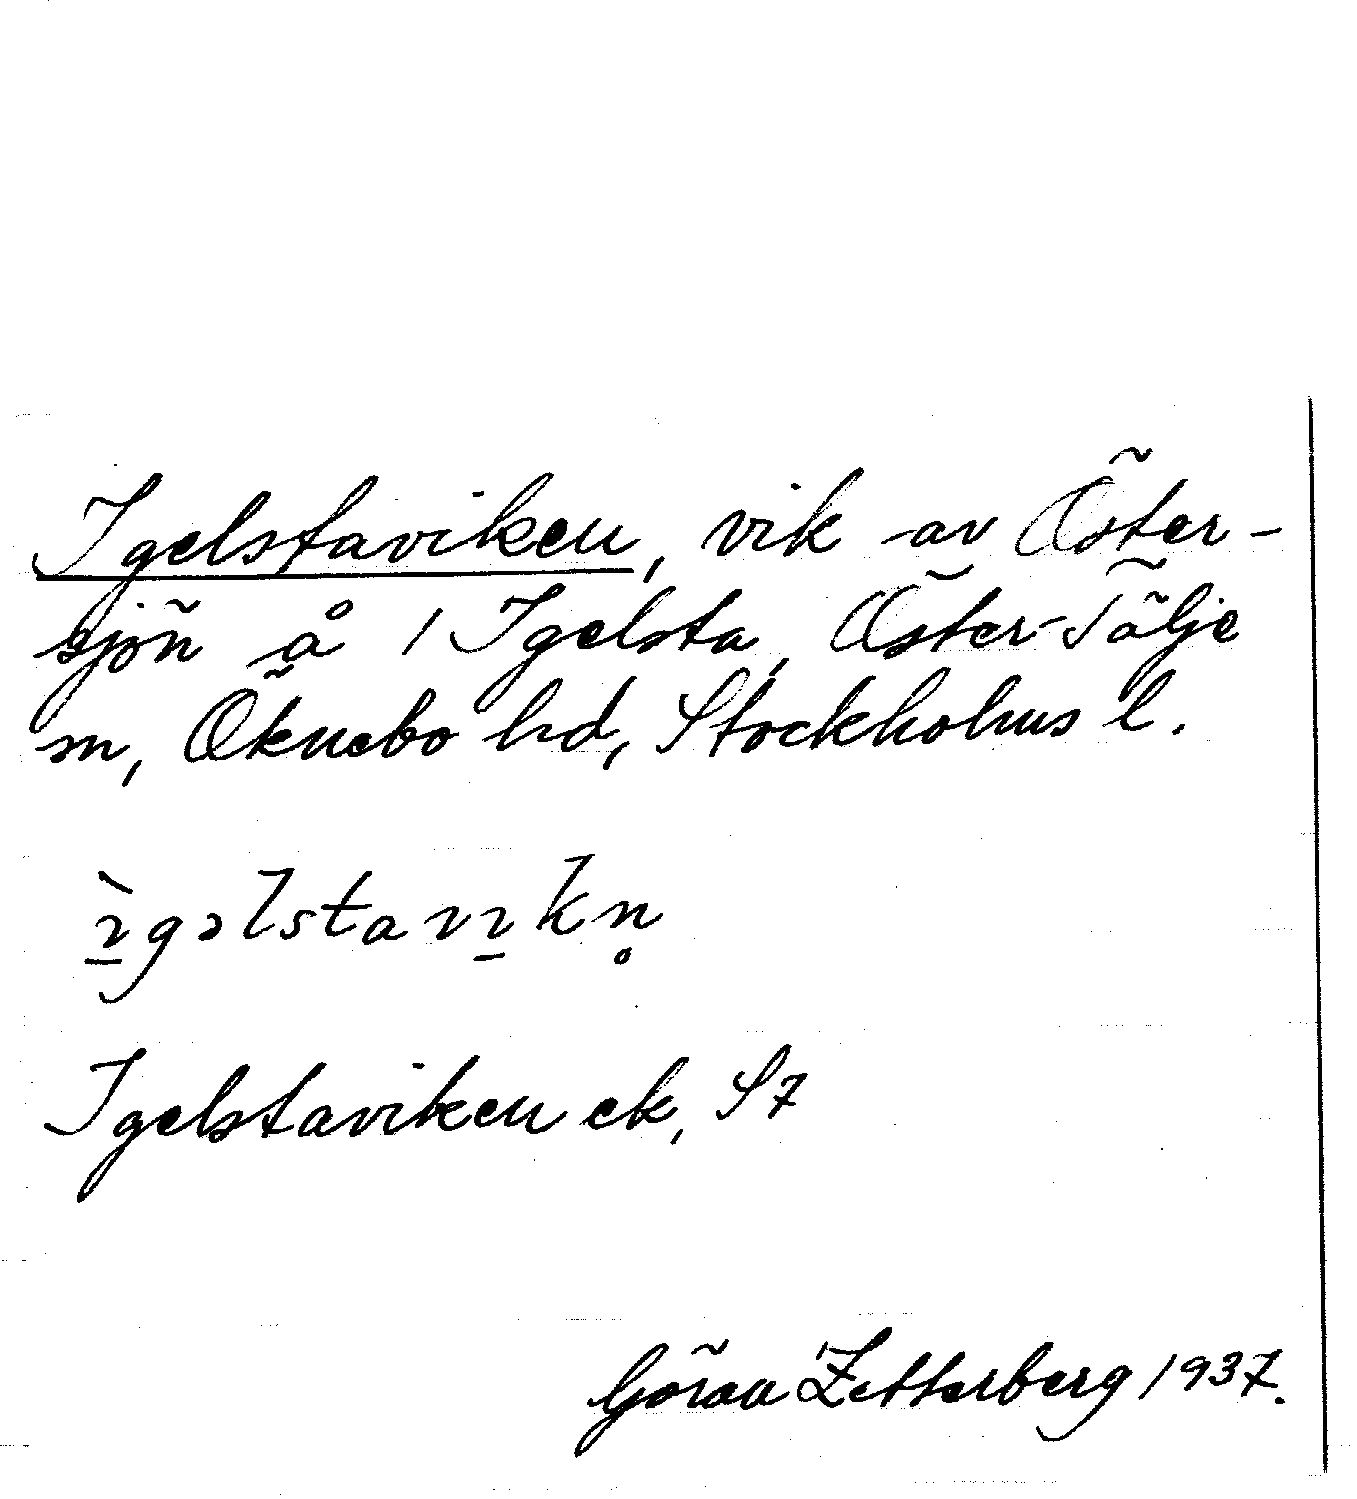 Igelstaviken, vik av Öster-
sjön å 1 Igelsta, Öster-Tälje
sn, Öknebo hd, Stockholms l.
ìgəlstavıkn̥
Igelstaviken ek, S7
Göran Zetterberg 1937.